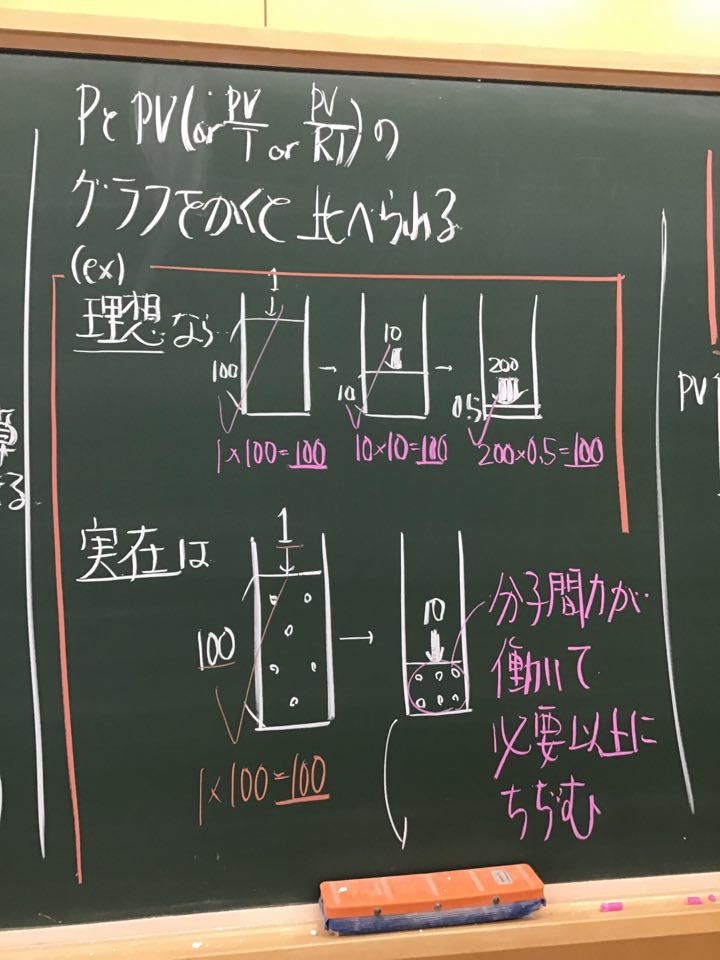 PとPV(or PV/T or PV/RT)の
グラフをかくと比べられる
(ex)
理想なら
1
100
→
10
10
→
200
0.5
1×100=100
10×10=100
200×0.5=100
実在は
1
100
→
10
1×100=100
分子間力が
働いて
必要以上に
ちぢむ
算
る
PV